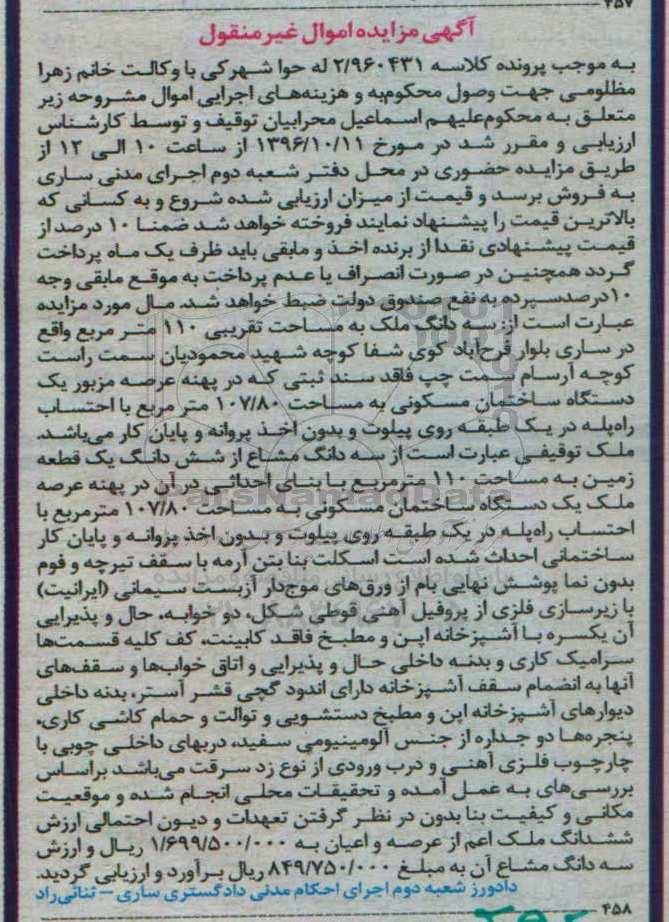 ۴۵۷
آگهی مزایده اموال غیر منقول
به موجب پرونده کلاسه ۲/۹۶۰۴۳۱ له حوا شهرکی با وکالت خانم زهرا
مظلومی جهت وصول محکوم‌به و هزینه‌های اجرایی اموال مشروحه زیر
متعلق به محکوم‌علیهم اسماعیل محرابیان توقیف و توسط کارشناس
ارزیابی و مقرر شد در مورخ ۱۳۹۶/۱۰/۱۱ از ساعت ۱۰ الی ۱۲ از
طریق مزایده حضوری در محل دفتر شعبه دوم اجرای مدنی ساری
به فروش برسد و قیمت از میزان ارزیابی شده شروع و به کسانی که
بالاترین قیمت را پیشنهاد نمایند فروخته خواهد شد ضمنا ۱۰ درصد از
قیمت پیشنهادی نقدا از برنده اخذ و مابقی باید ظرف یک ماه پرداخت
گردد همچنین در صورت انصراف یا عدم پرداخت به موقع مابقی وجه
۱۰درصدسپرده به نفع صندوق دولت ضبط خواهد شد. مال مورد مزایده
عبارت است از: سه دانگ ملک به مساحت تقریبی ۱۱۰ متر مربع واقع
در ساری بلوار فرح‌آباد کوی شفا کوچه شهید محمودیان سمت راست
کوچه آرسام سمت چپ فاقد سند ثبتی که در پهنه عرصه مزبور یک
دستگاه ساختمان مسکونی به مساحت ۱۰۷/۸۰ متر مربع با احتساب
راه‌پله در یک طبقه روی پیلوت و بدون اخذ پروانه و پایان کار می‌باشد.
ملک توقیفی عبارت است از سه دانگ مشاع از شش دانگ یک قطعه
زمین به مساحت ۱۱۰ مترمربع با بنای احداثی در آن در پهنه عرصه
ملک یک دستگاه ساختمان مسکونی به مساحت ۱۰۷/۸۰ مترمربع با
احتساب راه‌پله در یک طبقه روی پیلوت و بدون اخذ پروانه و پایان کار
ساختمانی احداث شده است اسکلت بنا بتن آرمه با سقف تیرچه و فوم
بدون نما پوشش نهایی بام از ورق‌های موج‌دار آزبست سیمانی (ایرانیت)
با زیرسازی فلزی از پروفیل آهنی قوطی شکل، دو خوابه. حال و پذیرایی
آن یکسره با آشپزخانه اپن و مطبخ فاقد کابینت. کف کلیه قسمت‌ها
سرامیک کاری و بدنه داخلی حال و پذیرایی و اتاق خواب‌ها و سقف‌های
آنها به انضمام سقف آشپزخانه دارای اندود گچی قشر آستر، بدنه داخلی
دیوارهای آشپزخانه اپن و مطبخ دستشویی و توالت و حمام کاشی کاری،
پنجره‌ها دو جداره از جنس آلومینیومی سفید، دربهای داخلی چوبی با
چارچوب فلزی آهنی و درب ورودی از نوع زد سرقت می‌باشد براساس
بررسی‌های به عمل آمده و تحقیقات محلی انجام شده و موقعیت
مکانی و کیفیت بنا بدون در نظر گرفتن تعهدات و دیون احتمالی ارزش
ششدانگ ملک اعم از عرصه و اعیان به ۱/۶۹۹/۵۰۰/۰۰۰ ریال و ارزش
سه دانگ مشاع آن به مبلغ ۸۴۹/۷۵۰/۰۰۰ ریال برآورد و ارزیابی گردید.
دادورز شعبه دوم اجرای احکام مدنی دادگستری ساری – ثنائی‌راد
۴۵۸
ParsNamadData